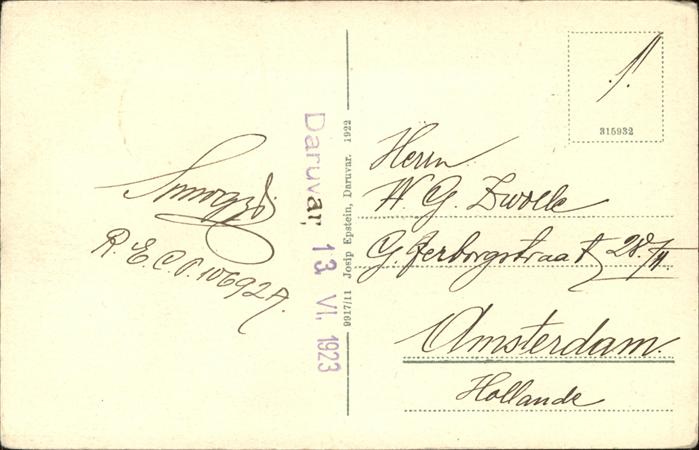 R. E. C. P. 10692A.
Daruvar, 13. VI. 1923
9917/11 Josip Epstein, Daruvar. 1922
315932
Herrn
W. G. Zwolle
G. Terborgstraat 28/II
Amsterdam.
Hollande